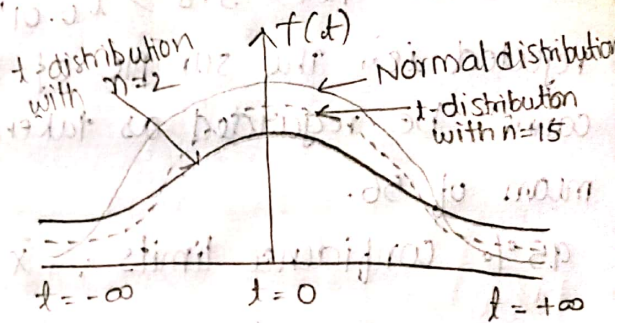 f(t)
t-distribution
with n=2
Normal distribution
t-distribution
with n=15
t = -∞
t = 0
t = +∞